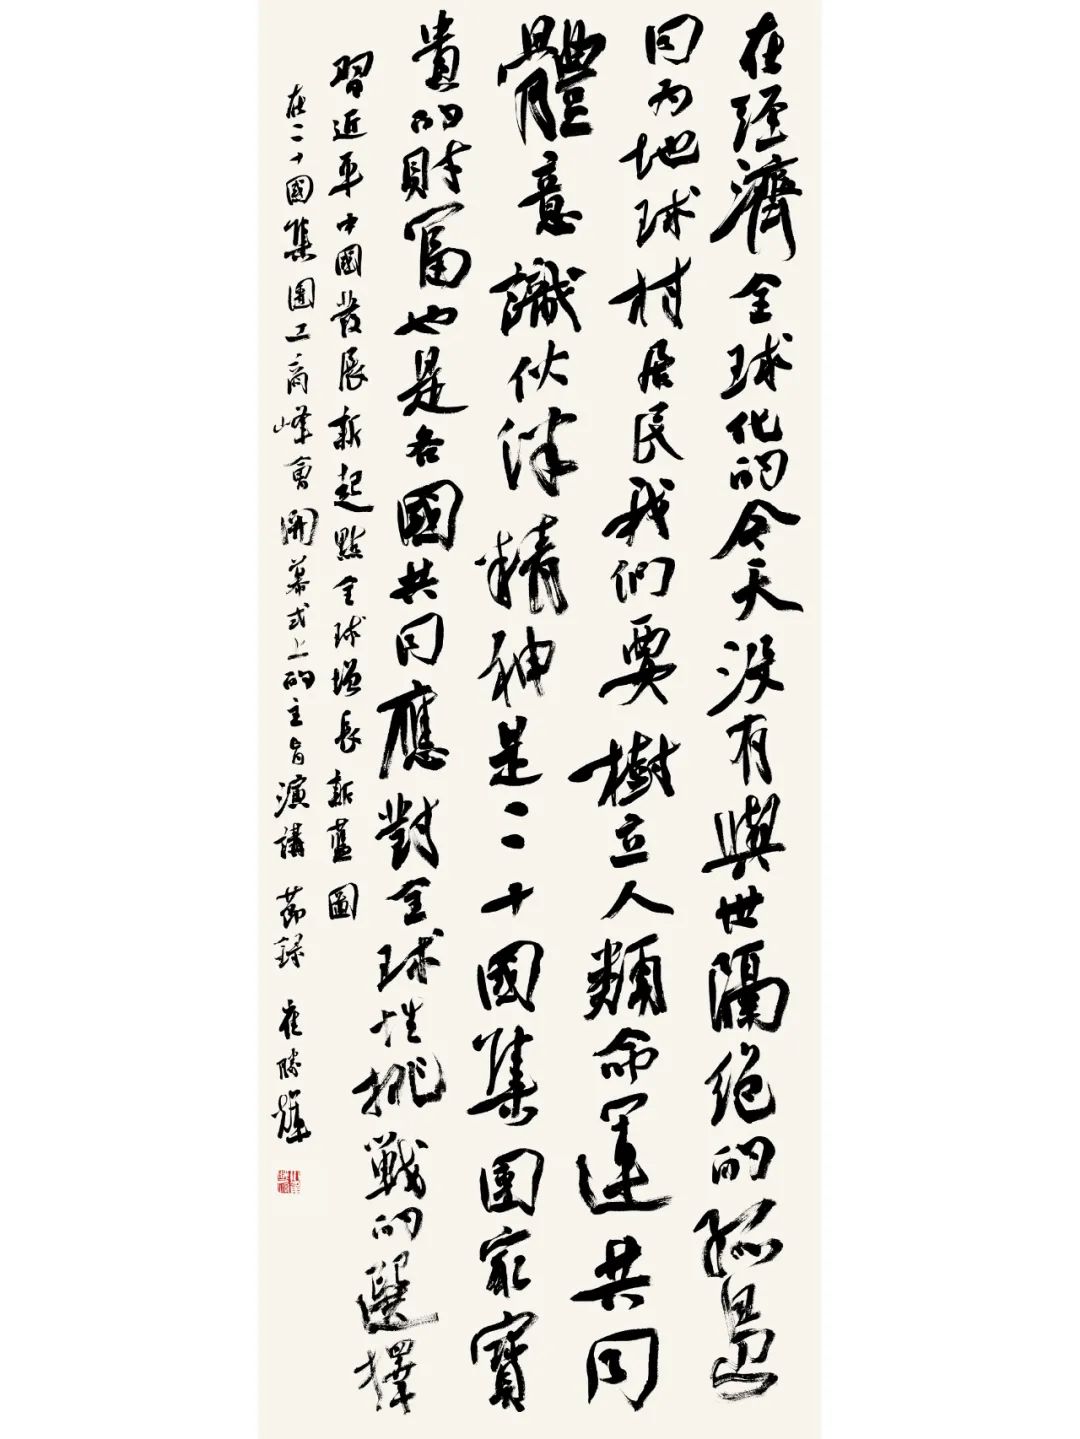 在經濟全球化的今天没有與世隔絕的孤島
同為地球村居民我們要樹立人類命運共同
體意識伙伴精神是二十國集團最寶
貴的財富也是各國共同應對全球性挑戰的選擇
習近平中國發展新起點全球增長新藍圖
在二十國集團工商峰會開幕式上的主旨演講 節錄 崔勝輝